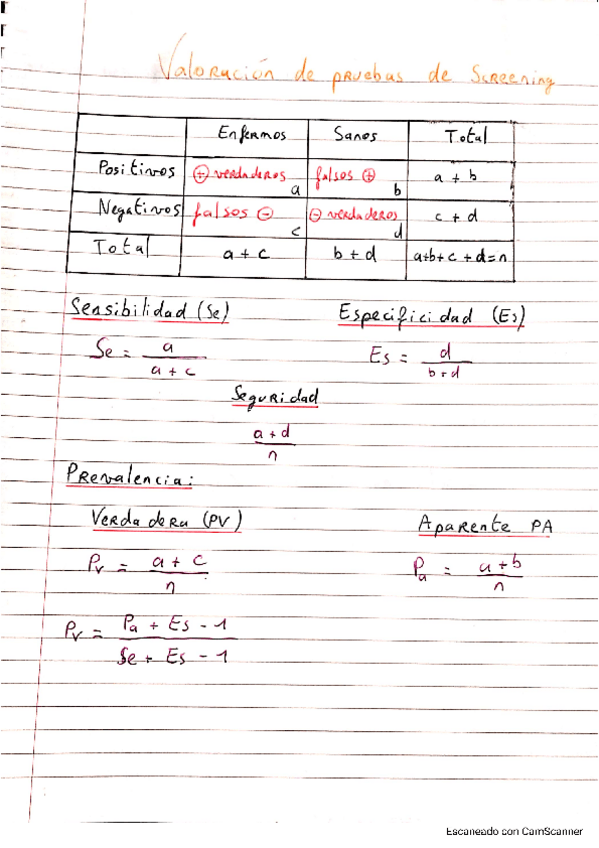 Valoración de pruebas de Screening
Enfermos Sanos Total
Positivos ⊕ verdaderos a falsos ⊕ b a + b
Negativos falsos ⊖ c ⊖ verdaderos d c + d
Total a + c b + d a+b+c+d=n
Sensibilidad (Se) Especificidad (Es)
Se = a / (a + c) Es = d / (b+d)
Seguridad
(a+d) / n
Prevalencia:
Verdadera (PV) Aparente PA
Pv = (a + c) / n Pa = (a+b) / n
Pv = (Pa + Es - 1) / (Se + Es - 1)
Escaneado con CamScanner